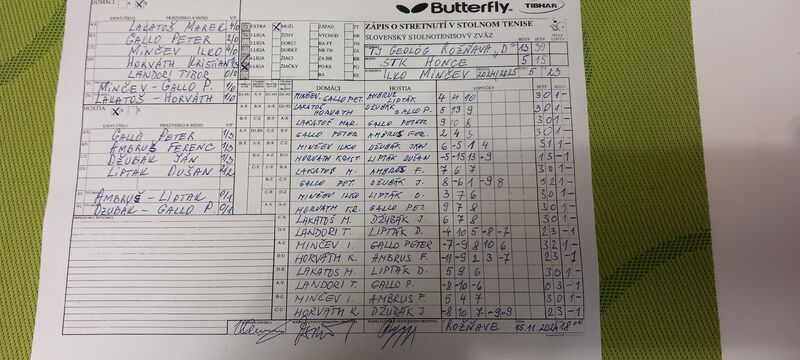 DOMÁCI
Butterfly TIBHAR
ZÁPIS O STRETNUTÍ V STOLNOM TENISE
SLOVENSKÝ STOLNOTENISOVÝ ZVÄZ
IDENT.ČÍSLO PRIEZVISKO A MENO V/P
LAKATOŠ MAREK 4/0
GALLO PETER 2/0
MINČEV ILKO 4/0
HORVÁTH KRISTIÁN 1/3
LANDORI TIBOR 0/2
MINČEV - GALLO P. 1/0
LAKATOŠ - HORVÁTH 1/0
EXTRA MUŽI ZÁPAD TT
I LIGA ŽENY VÝCHOD NR
DORCI BA-TT TN
DORKY NR-TN ZA
ŽIACI ZA-BB BB
ŽIAČKY PO-KE PO
BA KE
TJ GEOLÓG ROŽŇAVA "D" 13 39
STK HONCE 5 15
ILKO MINČEV 2024/2025 5 23
HOSTIA
IDENT.ČÍSLO PRIEZVISKO A MENO V/P
GALLO PETER 1/3
AMBRUŠ FERENC 1/3
DŽUBÁK JÁN 1/3
LIPTÁK DUŠAN 2/2
AMBRUŠ - LIPTÁK 0/1
DŽUBÁK - GALLO P. 0/1
DOMÁCI HOSTIA LOPTIČKY SETY
MINČEV GALLO PET. AMBRUŠ LIPTÁK 4 4 10 3 0 1 -
LAKATOŠ HORVÁTH DŽUBÁK GALLO P. 5 13 9 3 0 1 -
LAKATOŠ MAR. GALLO PETER 9 10 8 3 0 1 -
GALLO PETER AMBRUŠ FER. 2 4 5 3 0 1 -
MINČEV ILKO DŽUBÁK JÁN 6 -5 1 4 3 1 1 -
HORVÁTH KRIST. LIPTÁK DUŠAN -5 -13 13 -9 1 3 - 1
LAKATOŠ M. AMBRUŠ F. 7 6 7 3 0 1 -
GALLO PET. DŽUBÁK J. 3 2 1 -
MINČEV ILKO LIPTÁK D. 3 7 6 3 0 1 -
HORVÁTH KR. GALLO PET. 9 7 8 3 0 1 -
LAKATOŠ M. DŽUBÁK J. 6 7 8 3 0 1 -
LANDORI T. LIPTÁK D. -4 10 5 -8 -7 2 3 - 1
MINČEV I. GALLO PETER -7 -9 8 10 6 3 2 1 -
HORVÁTH K. AMBRUŠ F. -11 -9 2 3 -7 2 3 - 1
LAKATOŠ M. LIPTÁK D. 5 9 6 3 0 1 -
LANDORI T. GALLO P. -8 -10 -6 0 3 - 1
MINČEV I. AMBRUŠ F. 5 4 7 3 0 1 -
HORVÁTH K. DŽUBÁK J. -8 10 7 -9 -9 2 3 - 1
ROŽŇAVE 15.11.2024 18:00